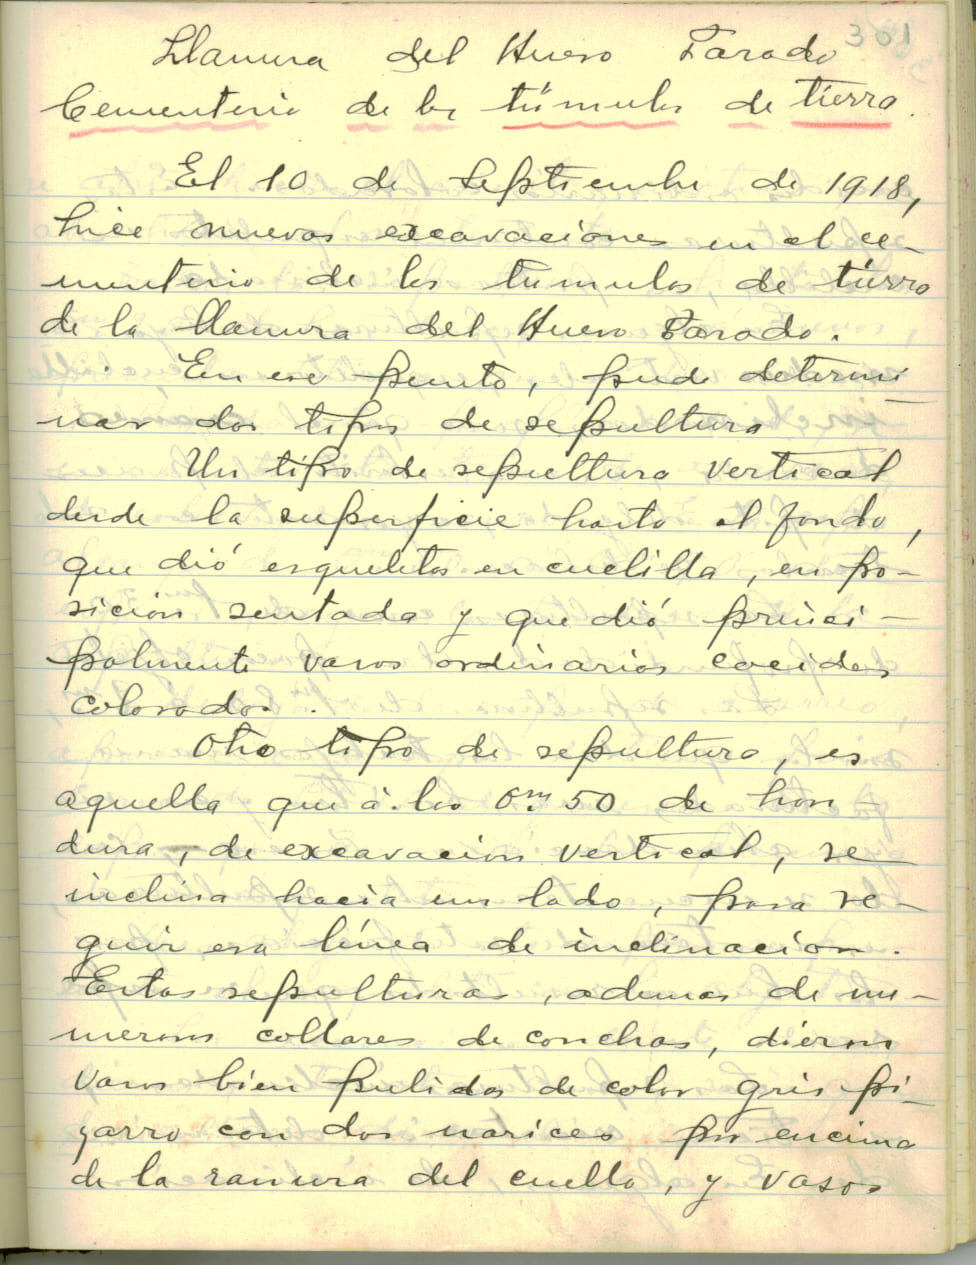 301
Llanura del Hueso Parado
Cementerio de los túmulos de tierra.
El 10 de Septiembre de 1918,
hice nuevas excavaciones en el ce-
menterio de los túmulos de tierra
de la llanura del Hueso Parado.
En ese punto, pude determi-
nar dos tipos de sepultura
Un tipo de sepultura vertical
desde la superficie hasta el fondo,
que dió esqueletos en cuclilla, en po-
sición sentada y que dió princi-
palmente vasos ordinarios cocidos
colorados.
Otro tipo de sepultura, es
aquella que á los 0m50 de hon-
dura, de excavación vertical, se
inclina hacia un lado, para se-
guir esa línea de inclinación.
Estas sepulturas, ademas de nu-
merosos collares de conchas, dieron
vasos bien pulidos de color gris pi-
zarro con dos narices por encima
de la ranura del cuello, y vasos